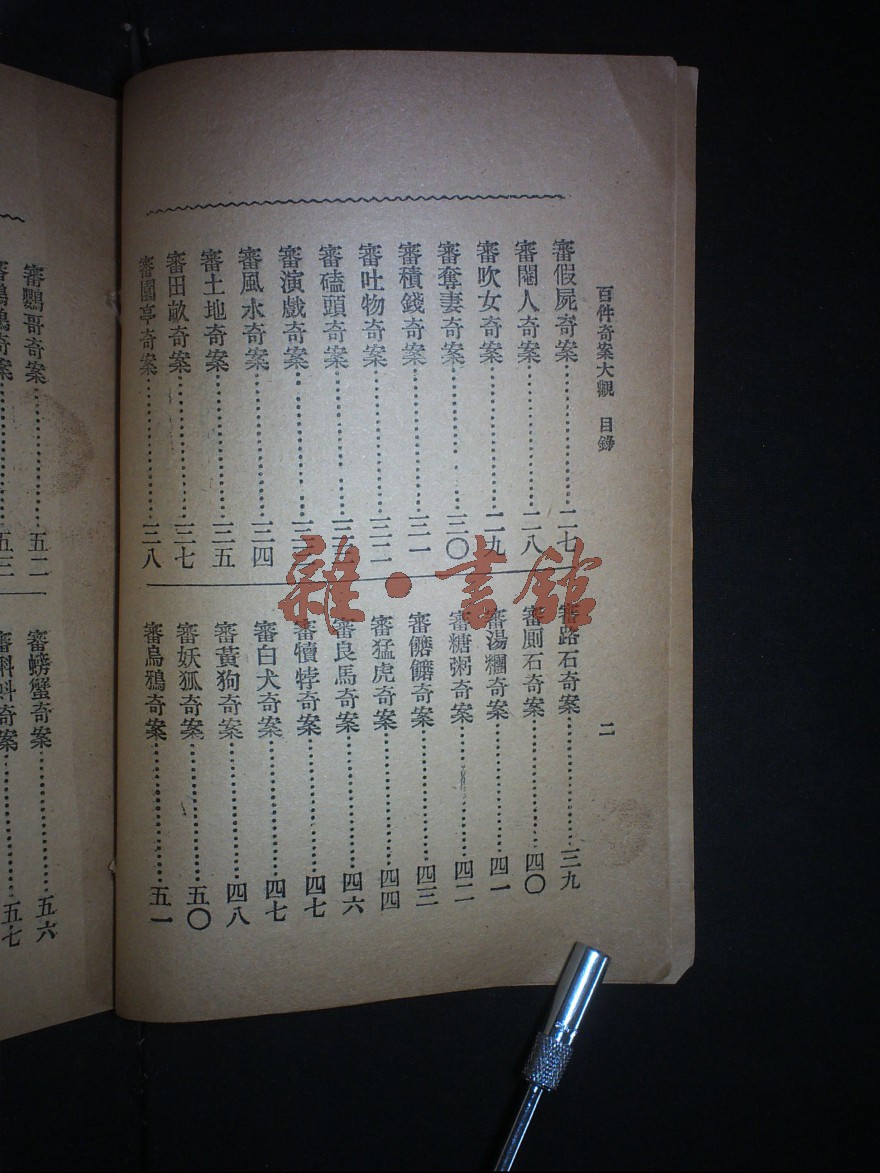 百件奇案大觀 目錄 二
審假屍奇案 二七
審閹人奇案 二八
審吹女奇案 二九
審奪妻奇案 三〇
審積錢奇案 三一
審吐物奇案 三二
審磕頭奇案
審演戲奇案
審風水奇案 三四
審土地奇案 三五
審田畝奇案 三七
審園亭奇案 三八
審路石奇案 三九
審厠石奇案 四〇
審湯糰奇案 四一
審糖粥奇案 四二
審髒髒奇案 四三
審猛虎奇案 四四
審良馬奇案 四六
審犢牸奇案 四七
審白犬奇案 四七
審黃狗奇案 四八
審妖狐奇案 五〇
審烏鴉奇案 五一
審鸚哥奇案 五二
奇案 五三
審螃蟹奇案 五六
審蝌蚪奇案 五七
雜·書館